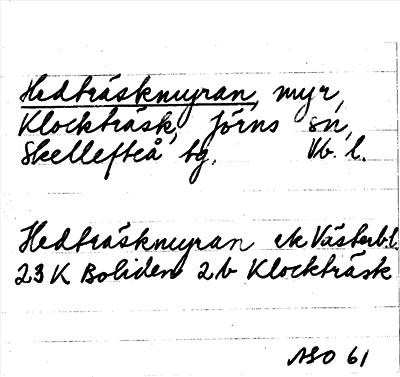 Hedträskmyran, myr,
Klockträsk, Jörns sn,
Skellefteå tg. Vb. l.
Hedträskmyran ek Västerb.l.
23 K Boliden 2b Klockträsk
ASO 61